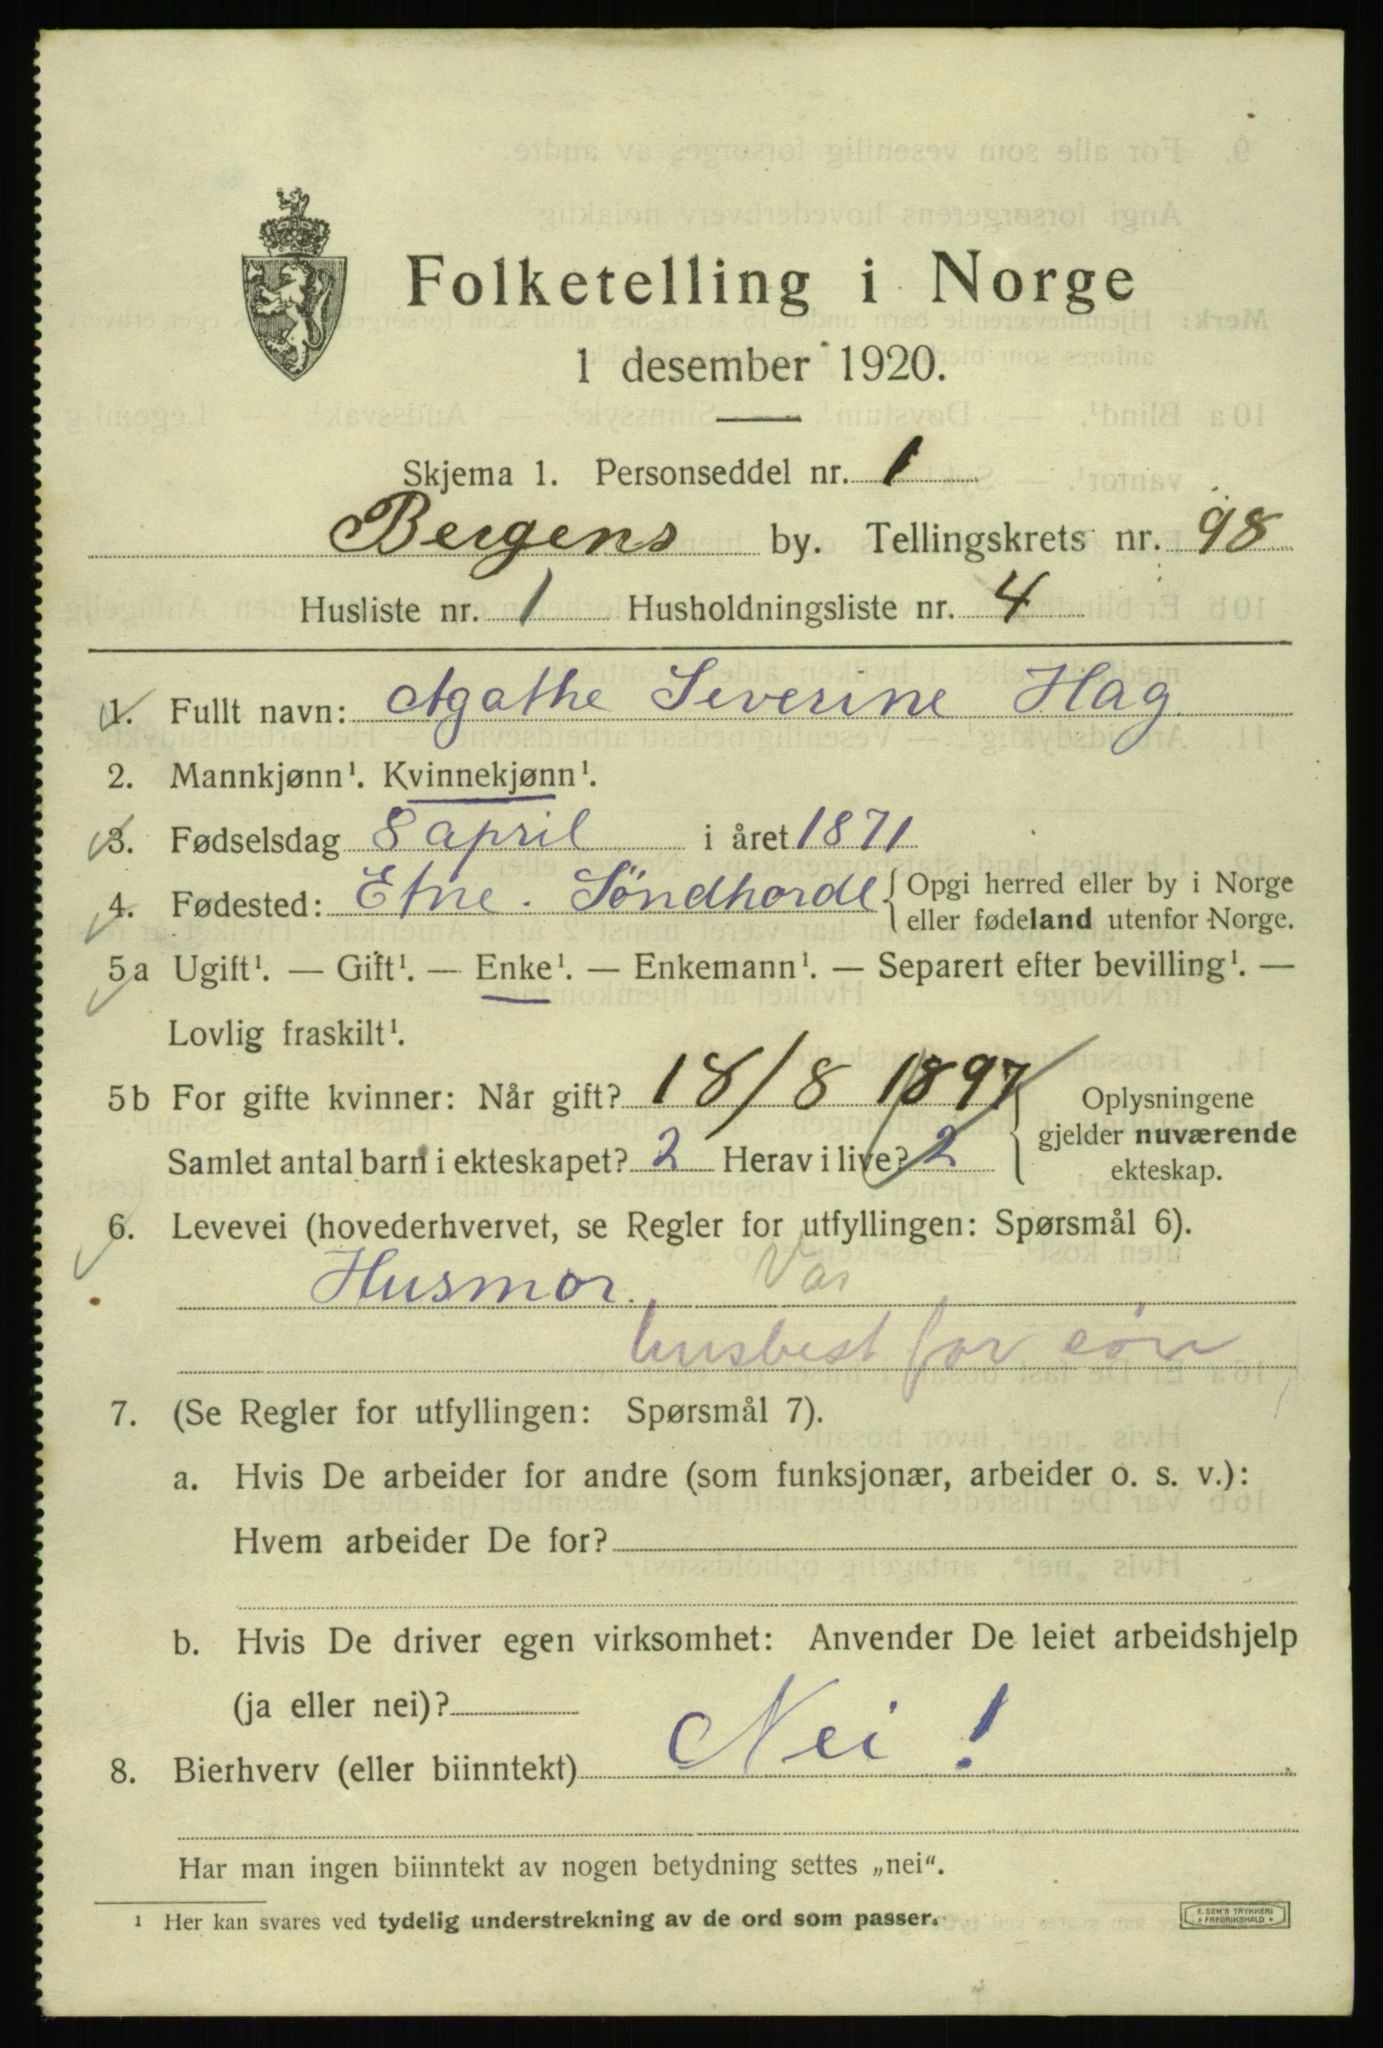 Folketelling i Norge
1 desember 1920.
Skjema 1. Personseddel nr. 1
Bergens by. Tellingskrets nr. 98
Husliste nr. 1 Husholdningsliste nr. 4
1. Fullt navn: Agathe Severine Hag
2. Mannkjønn¹. Kvinnekjønn¹.
3. Fødselsdag 8 april i året 1871
4. Fødested: Etne. Söndhordl { Opgi herred eller by i Norge
eller fødeland utenfor Norge.
5a Ugift¹. — Gift¹. — Enke¹. — Enkemann¹. — Separert efter bevilling¹. —
Lovlig fraskilt¹.
5b For gifte kvinner: Når gift? 18/8 1897
Samlet antal barn i ekteskapet? 2 Herav i live? 2
} Oplysningene
gjelder nuværende
ekteskap.
6. Levevei (hovederhvervet, se Regler for utfyllingen: Spørsmål 6).
Husmor. Vas
husbest for søn
7. (Se Regler for utfyllingen: Spørsmål 7).
a. Hvis De arbeider for andre (som funksjonær, arbeider o. s. v.):
Hvem arbeider De for?
b. Hvis De driver egen virksomhet: Anvender De leiet arbeidshjelp
(ja eller nei)?
8. Bierhverv (eller biinntekt) Nei!
Har man ingen biinntekt av nogen betydning settes „nei“.
¹ Her kan svares ved tydelig understrekning av de ord som passer.
E. SEM'S TRYKKERI
FREDRIKSHALD